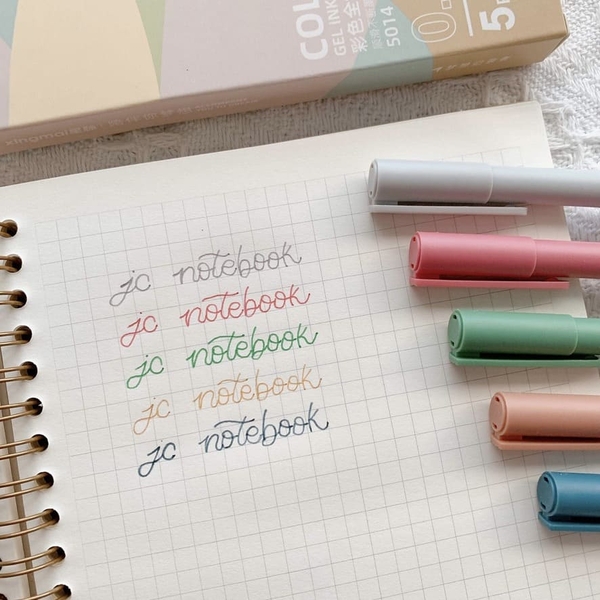 COL
GEL INK
彩色全
5014
5
jc notebook
jc notebook
jc notebook
jc notebook
jc notebook